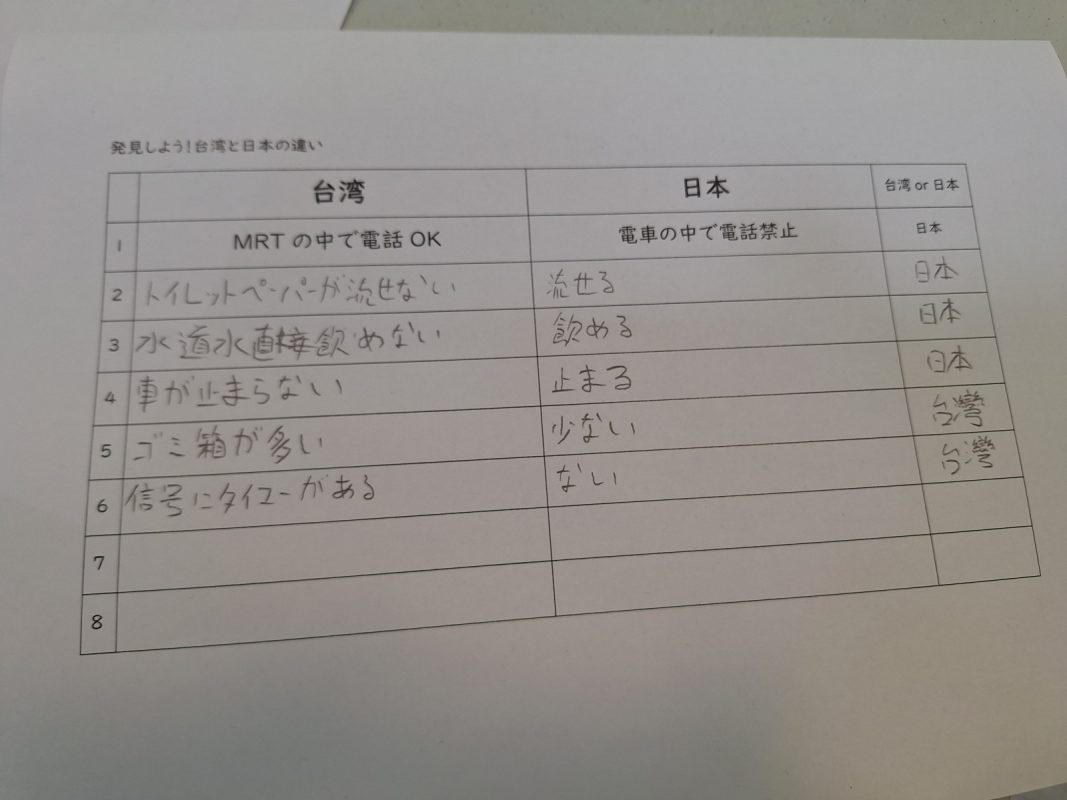 発見しよう!台湾と日本の違い
台湾 日本 台湾 or 日本
1 MRT の中で電話 OK 電車の中で電話禁止 日本
2 トイレットペーパーが流せない 流せる 日本
3 水道水直接飲めない 飲める 日本
4 車が止まらない 止まる 日本
5 ゴミ箱が多い 少ない 台灣
6 信号にタイコーがある ない 台灣
7
8